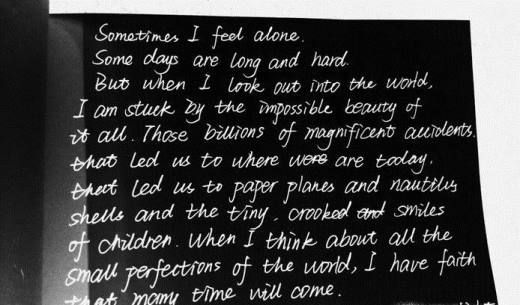 Sometimes I feel alone.
Some days are long and hard.
But when I look out into the world,
I am stuck by the impossible beauty of
it all. Those billions of magnificent auidents.
that led us to where were are today.
that led us to paper planes and nautilus
shells and the tiny. crooked and smiles
of children. When I think about all the
small perfections of the world, I have faith
that many time will come.